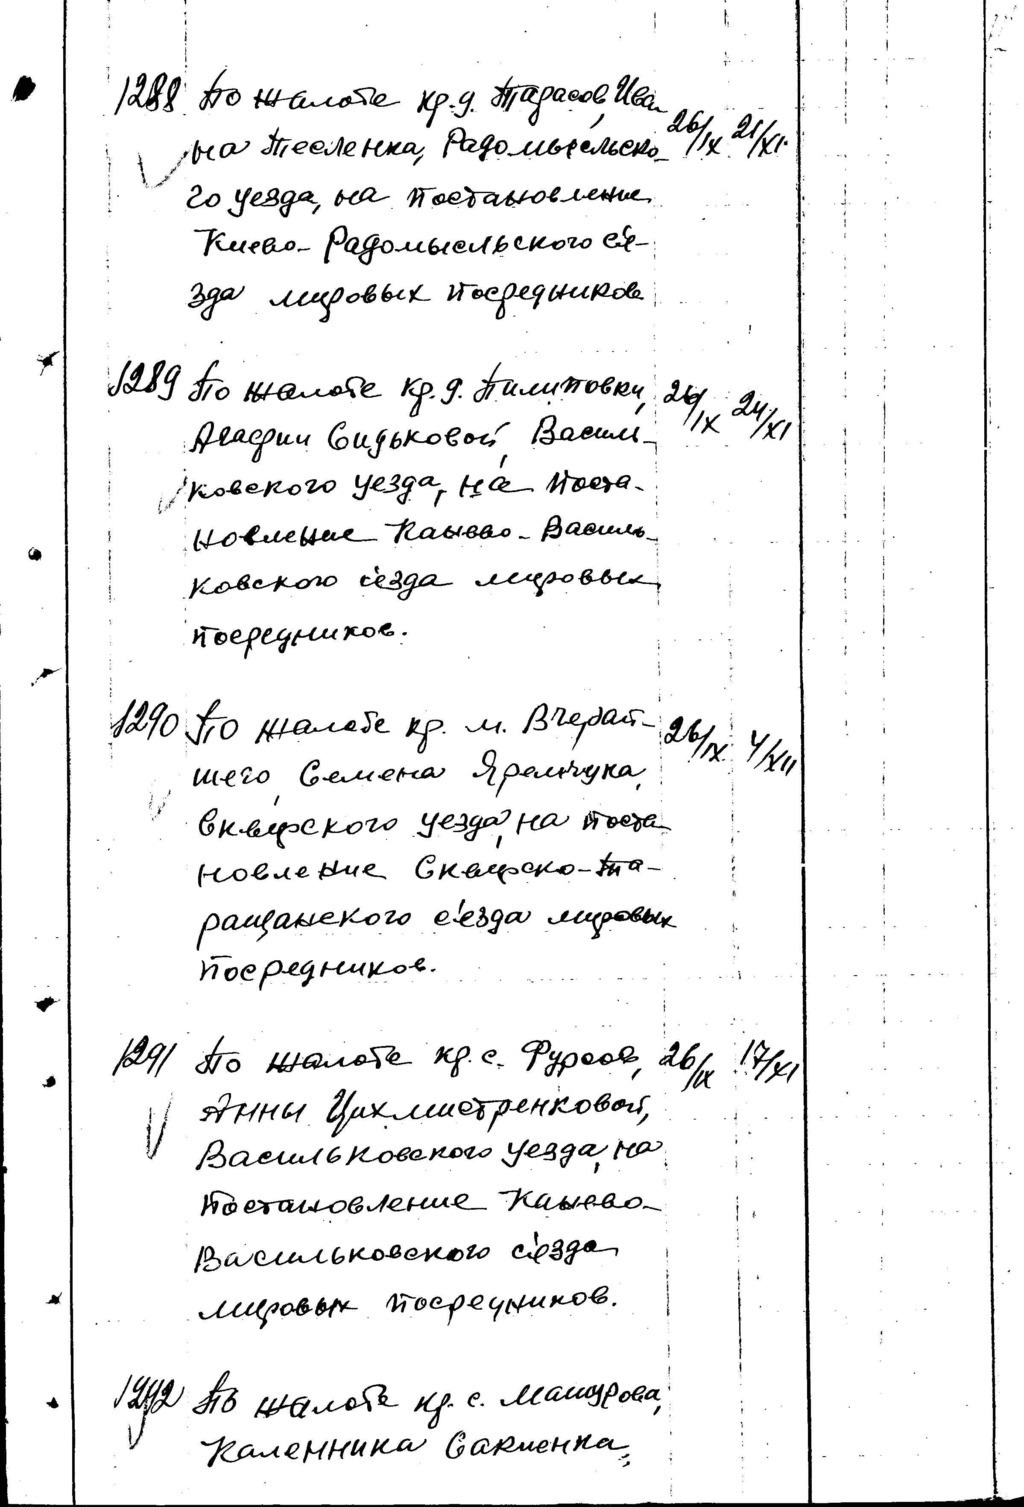 1288 По жалобе кр. д. Тарасов, Ива-
на Тесленка, Радомысльско- 26/IX 21/XI
го уезда, на постановление
Киево-Радомысльского с'е-
зда мировых посредников
1289 По жалобе кр. д. Пилиповки, 26/IX 24/XI
Агафии Сидьковой, Василь-
ковского уезда, на поста-
новление Канево-Василь-
ковского с'езда мировых
посредников.
1290 По жалобе кр. м. Вчерай-
шего, Семена Яремчука, 26/IX 4/XII
Сквирского уезда, на поста-
новление Сквирско-Та-
ращанского с'езда мировых
посредников.
1291 По жалобе кр. с. Фурсов, 26/IX 17/XI
Анны Цихмистренковой,
Васильковского уезда, на
постановление Канево-
Васильковского с'езда
мировых посредников.
1292 По жалобе кр. с. Машурова,
Каленника Сакиенка,